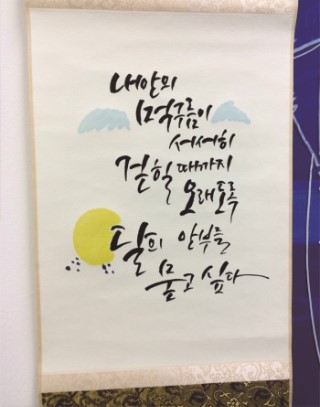 내안의
먹구름이
서서히
걷힐 때까지
오래도록
달의 안부를
묻고 싶다